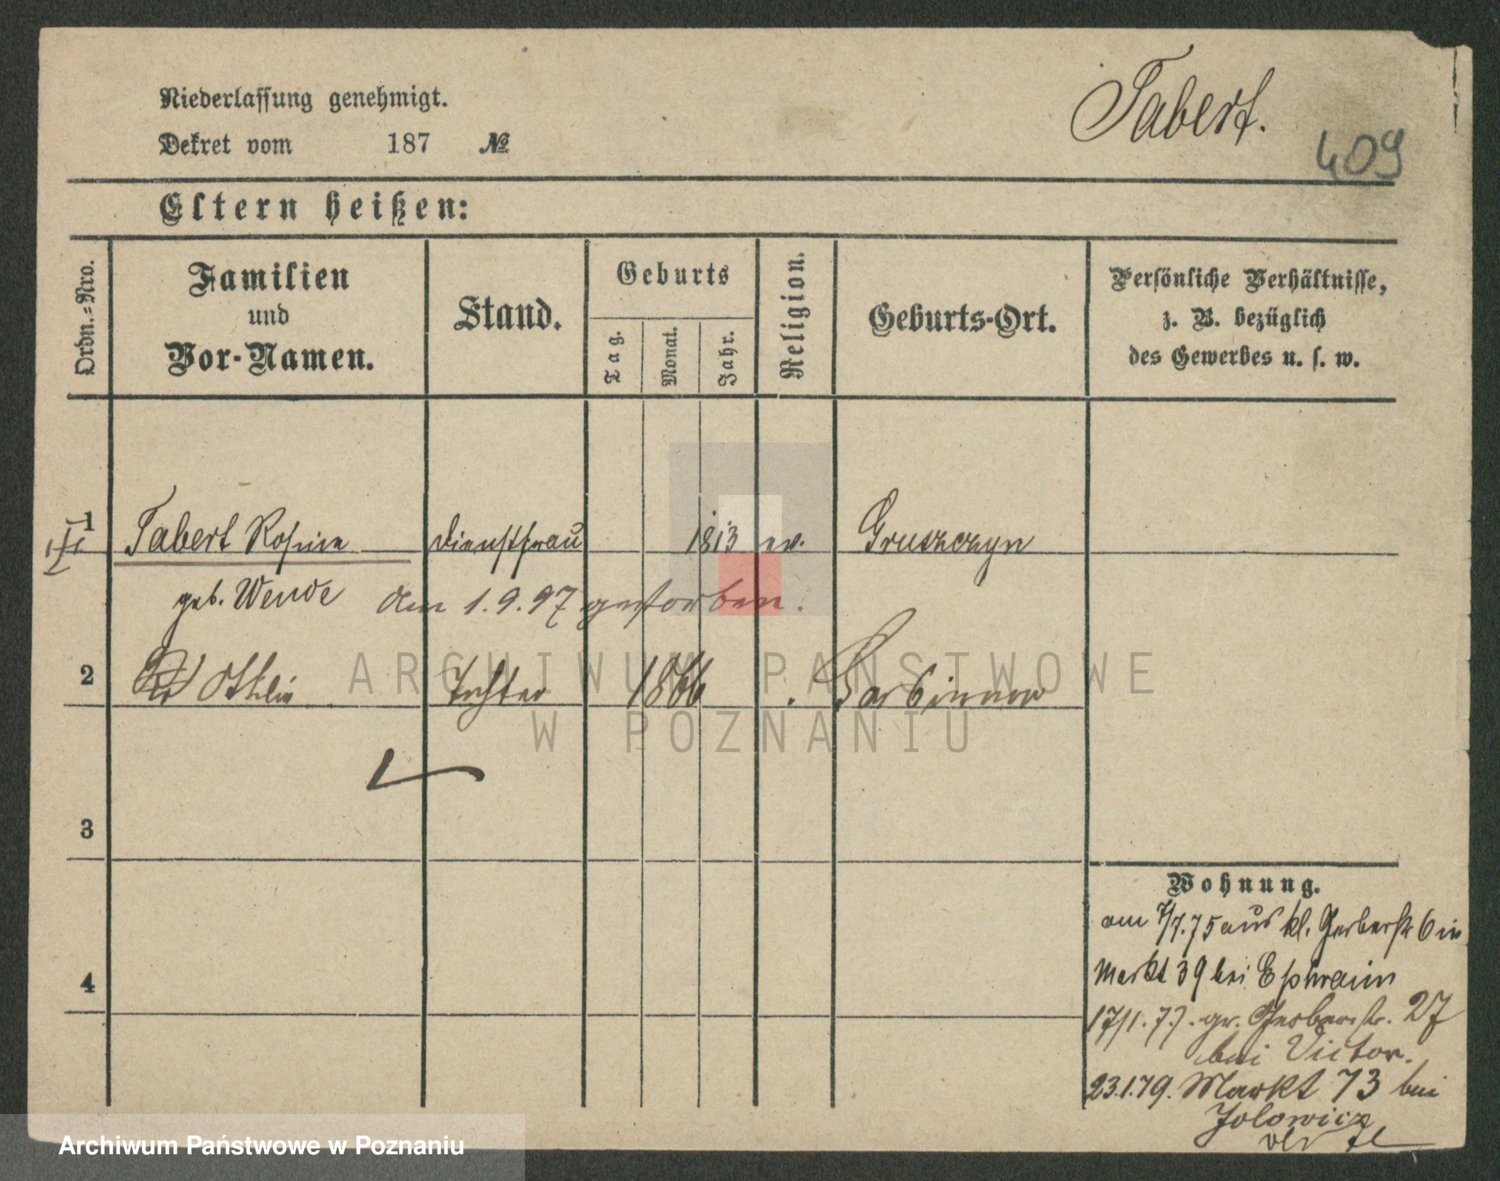 Niederlassung genehmigt.
Dekret vom 187 №
Tabert.
409
Eltern heißen:
Ordn.-Nro.
Familien
und
Vor-Namen.
Stand.
Geburts
Tag.
Monat.
Jahr.
Religion.
Geburts-Ort.
Persönliche Verhältnisse,
z. B. bezüglich
des Gewerbes u. s. w.
1 Tabert Rosine Dienstfrau 1813 ev. Gruszczyn
geb. Wende den 1.9.97 gestorben.
2 Othlie Tochter 1866
3
4
Wohnung.
am 7/7.75 aus kl. Gerberstr 6 in
Markt 39 bei Ephraim
17/1.77. gr. Gerberstr. 27
bei Victor.
23.1.79. Markt 73 bei
Jolowicz
ARCHIWUM PAŃSTWOWE
W POZNANIU
Archiwum Państwowe w Poznaniu